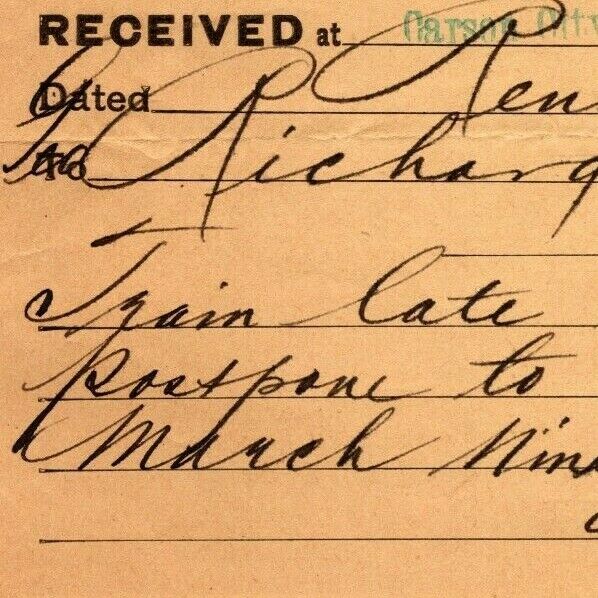 RECEIVED at Carson City
Dated Ren
To Geo Richar
Train late
postpone to
March Nin